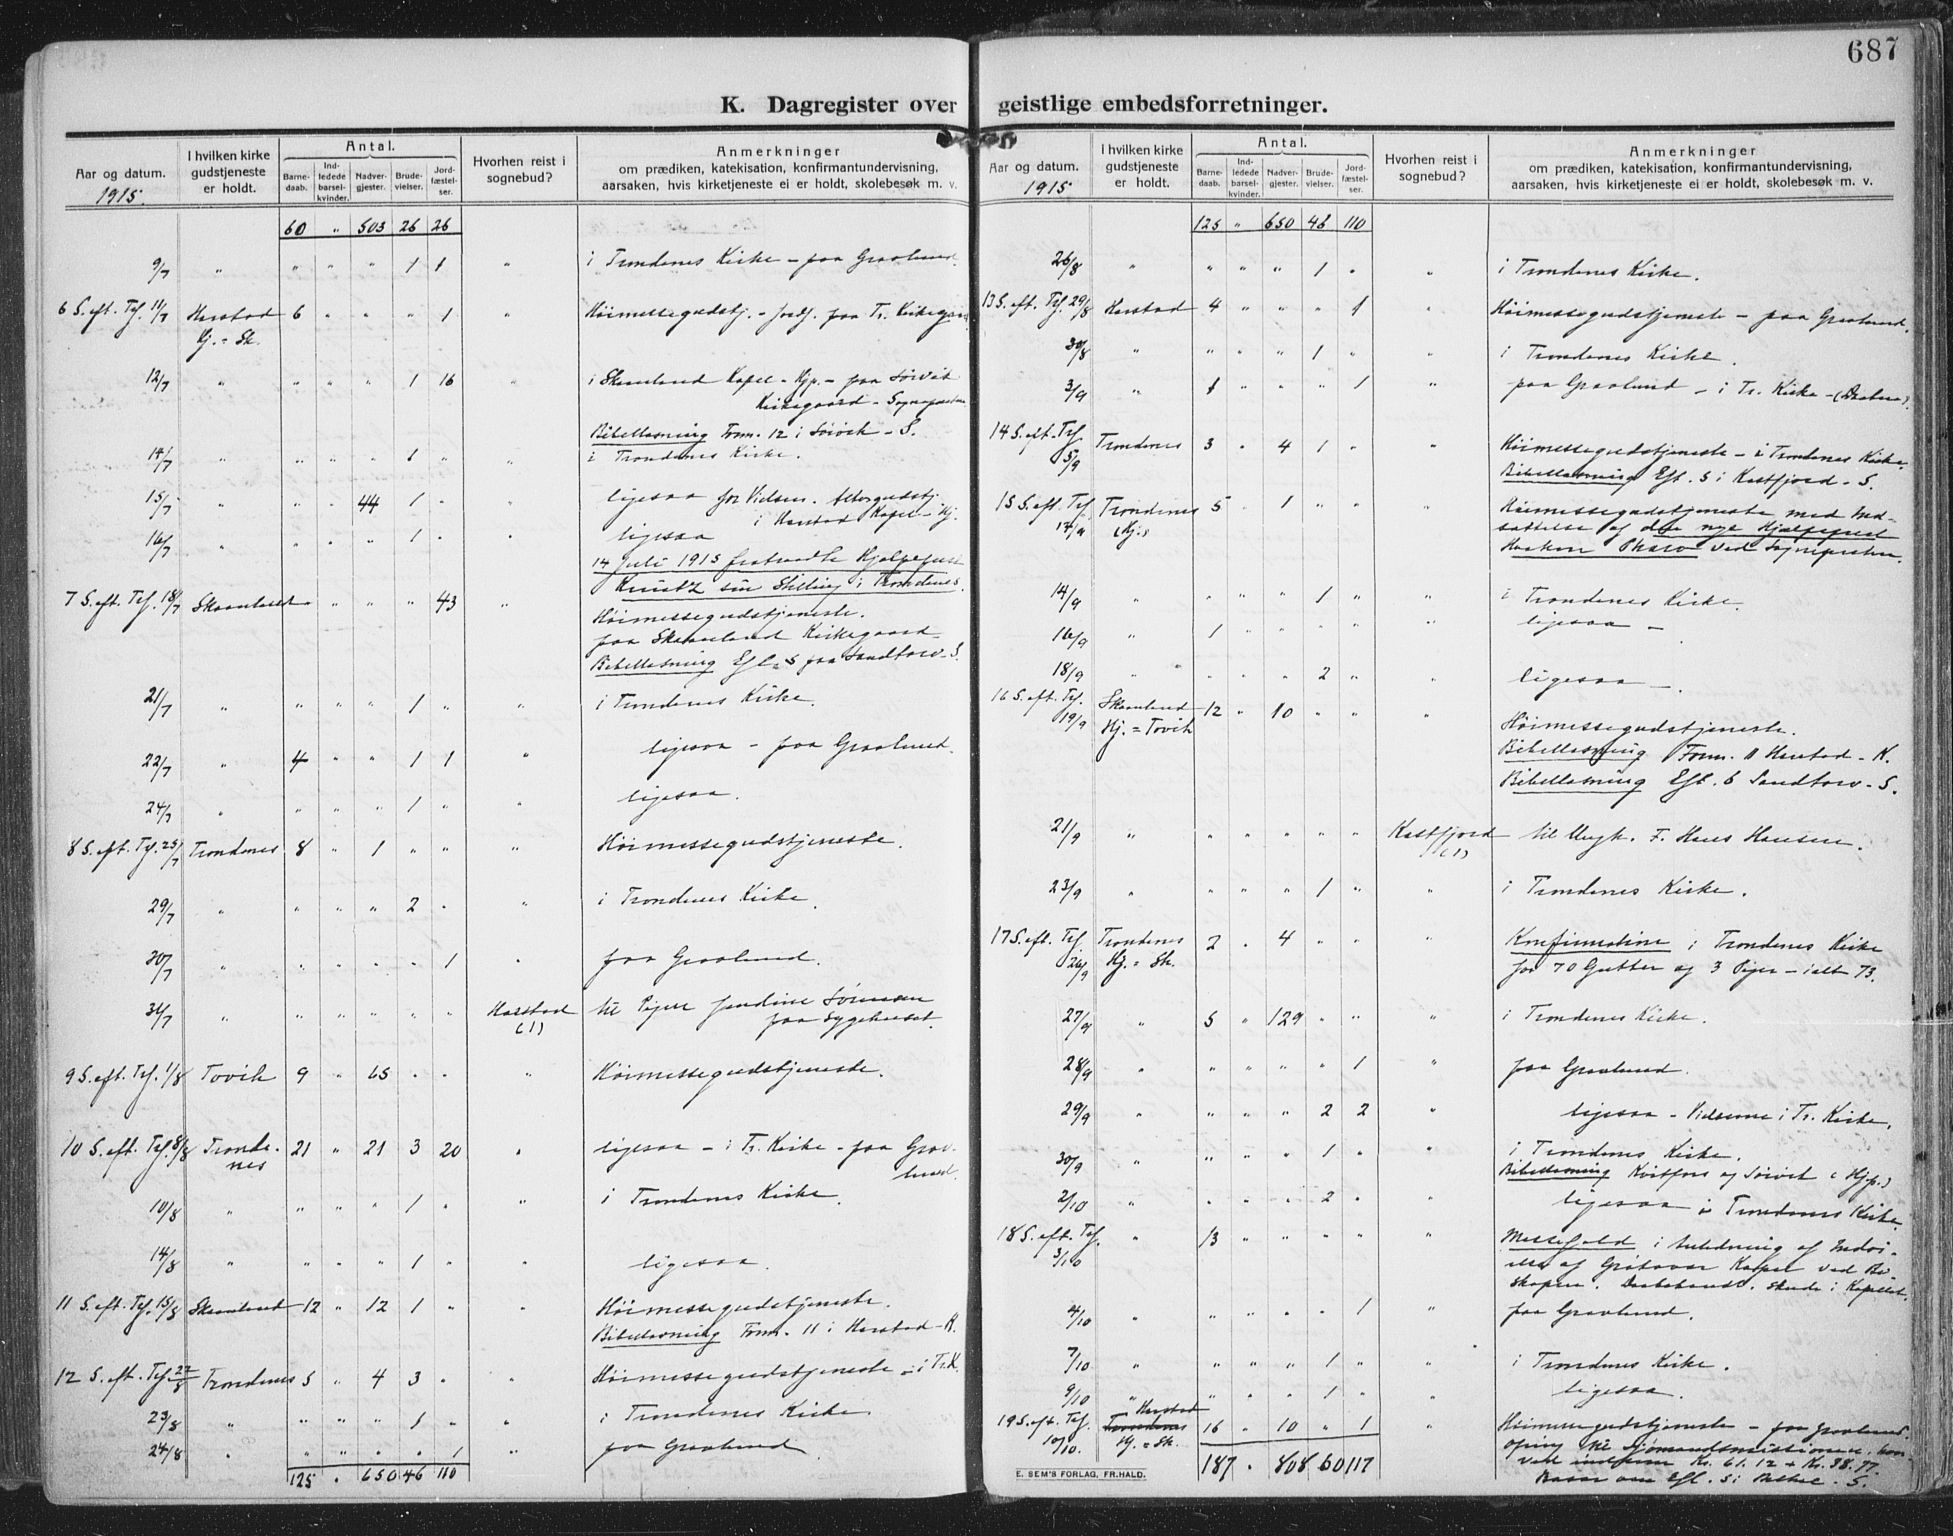 687
K. Dagregister over geistlige embedsforretninger.
Aar og datum. 1915.
I hvilken kirke gudstjeneste er holdt.
Antal.
Barne-daab.
Ind-ledede barsel-kvinder.
Nadver-gjester.
Brude-vielser.
Jord-fæstel-ser.
Hvorhen reist i sognebud?
Anmerkninger
om prædiken, katekisation, konfirmantundervisning,
aarsaken, hvis kirketjeneste ei er holdt, skolebesøk m. v.
60 " 503 26 26
9/7 " " " " 1 1 " i Trondenes Kirke - paa Gravlund.
6 S. eft. Tref. 11/7 Harstad 6 " " " 1 " Höimessegudstj. - Jordf. paa Tr. Kirkegaard
Kj. = Sk.
12/7 " " " " 1 16 " i Skaanland Kapel - Hjp. - paa Sørvik
Kirkegaard - Sognepresten
Bibellæsning Form. 12 i Sörvik - S.
14/7 " " " " 1 " " i Trondenes Kirke.
15/7 " " " 44 1 " " ligesaa for Vielsen. Altergudstj.
i Harstad Kapel - Hj.
16/7 " " " " 1 " " ligesaa
14 Juli 1915 fratraadte Hjælpeprest
Kruatz sin Stilling i Trondenes.
7 S. eft. Tref. 18/7 Skaanland " " " " 43 " Höimessegudstjeneste.
paa Skaanland Kirkegaard.
Bibellæsning Eft. 5 paa Sandtorv - S.
21/7 " " " " 1 " " i Trondenes Kirke.
22/7 " 4 " " 1 1 " ligesaa - paa Gravlund.
24/7 " " " " 1 " " ligesaa.
8 S. eft. Tref. 25/7 Trondenes 8 " 1 " " " Höimessegudstjeneste.
29/7 " " " " 2 " " i Trondenes Kirke.
30/7 " " " " " 1 " paa Gravlund.
31/7 " " " " " " Harstad (1) til Pigen Jordine Sörensen
paa Sygehuset.
9 S. eft. Tref. 1/8 Tovik 9 " 65 " " " Höimessegudstjeneste.
10 S. eft. Tref. 8/8 Tronde-nes 21 " 21 3 20 " ligesaa - i Tr. Kirke - paa Grav-
lund.
10/8 " " " " 1 " " i Trondenes Kirke.
14/8 " " " " 1 " " ligesaa.
11 S. eft. Tref. 15/8 Skaanland 12 " 12 1 " " Höimessegudstjeneste.
Bibellæsning Form. 11 i Harstad - K.
12 S. eft. Tref. 22/8 Trondenes 5 " 4 3 " " Höimessegudstjeneste - i Tr. K.
23/8 " " " " 1 " " i Trondenes Kirke
24/8 " " " " " 1 " paa Gravlund.
125 " 650 46 110
Aar og datum. 1915
I hvilken kirke gudstjeneste er holdt.
Antal.
Barne-daab.
Ind-ledede barsel-kvinder.
Nadver-gjester.
Brude-vielser.
Jord-fæstel-ser.
Hvorhen reist i sognebud?
Anmerkninger
om prædiken, katekisation, konfirmantundervisning,
aarsaken, hvis kirketjeneste ei er holdt, skolebesøk m. v.
125 " 650 46 110
26/8 " " " " 1 " " i Trondenes Kirke.
13 S. eft. Tref. 29/8 Harstad 4 " " " 1 " Höimessegudstjeneste - paa Gravlund.
30/8 " " " " 1 " " i Trondenes Kirke.
3/9 " 1 " " " 1 " paa Gravlund - i Tr. Kirke - (Daaben).
14 S. eft. Tref. 5/9 Trondenes 3 " 4 1 " " Höimessegudstjeneste - i Trondenes Kirke.
Bibellæsning Eft. 5 i Kastfjord - S.
15 S. eft. Tref. 12/9 Trondenes (Hj.) 5 " 1 " " " Höimessegudstjeneste med Ind-
sættelse af den nye Hjælpeprest
Haakon Pharo ved Sognepresten.
14/9 " " " " 1 " " i Trondenes Kirke.
16/9 " 1 " " " " " ligesaa -
18/9 " " " " 2 " " ligesaa -.
16 S. eft. Tref. 19/9 Skaanland 12 " 10 " " " Höimessegudstjeneste.
Hj. = Tovik
Bibellæsning Form. 11 Harstad - K.
Bibellæsning Eft. 6 Sandtorv - S.
21/9 " " " " " " Kastfjord (1) til Ungk. F. Hans Hansen.
23/9 " " " " 1 " " i Trondenes Kirke.
17 S. eft. Tref. 26/9 Trondenes 2 " 4 " " " Konfirmation i Trondenes Kirke
Hj. = Sk.
for 70 Gutter og 3 Piger - ialt 73.
27/9 " 5 " 129 " " " i Trondenes Kirke.
28/9 " " " " " 1 " paa Gravlund.
29/9 " " " " 2 2 " ligesaa - Vielserne i Tr. Kirke.
30/9 " " " " 1 " " i Trondenes Kirke.
Bibellæsning Kastfjord og Sörvik (Hjp.)
2/10 " " " " 2 " " ligesaa i Trondenes Kirke.
18 S. eft. Tref. 3/10 " 13 " " " " " Messefald i Anledning af Indvi-
else af Grötavær Kapel ved Bi-
skopen. Daabshandl. skede i Kapellet.
4/10 " " " " " 1 " paa Gravlund.
7/10 " " " " 1 " " i Trondenes Kirke.
9/10 " " " " 1 " " ligesaa.
19 S. eft. Tref. 10/10. Harstad Trondenes 16 " 10 " 1 " Höimessegudstjeneste - paa Gravlund.
Hj. = Sk.
Ofring til Sjömandsmissionen, hvor-
ved indkom Kr. 61.12 + Kr. 38.77.
Eft. 5 i Bethel - S.
187 " 808 60 117
E. SEM'S FORLAG, FR.HALD.